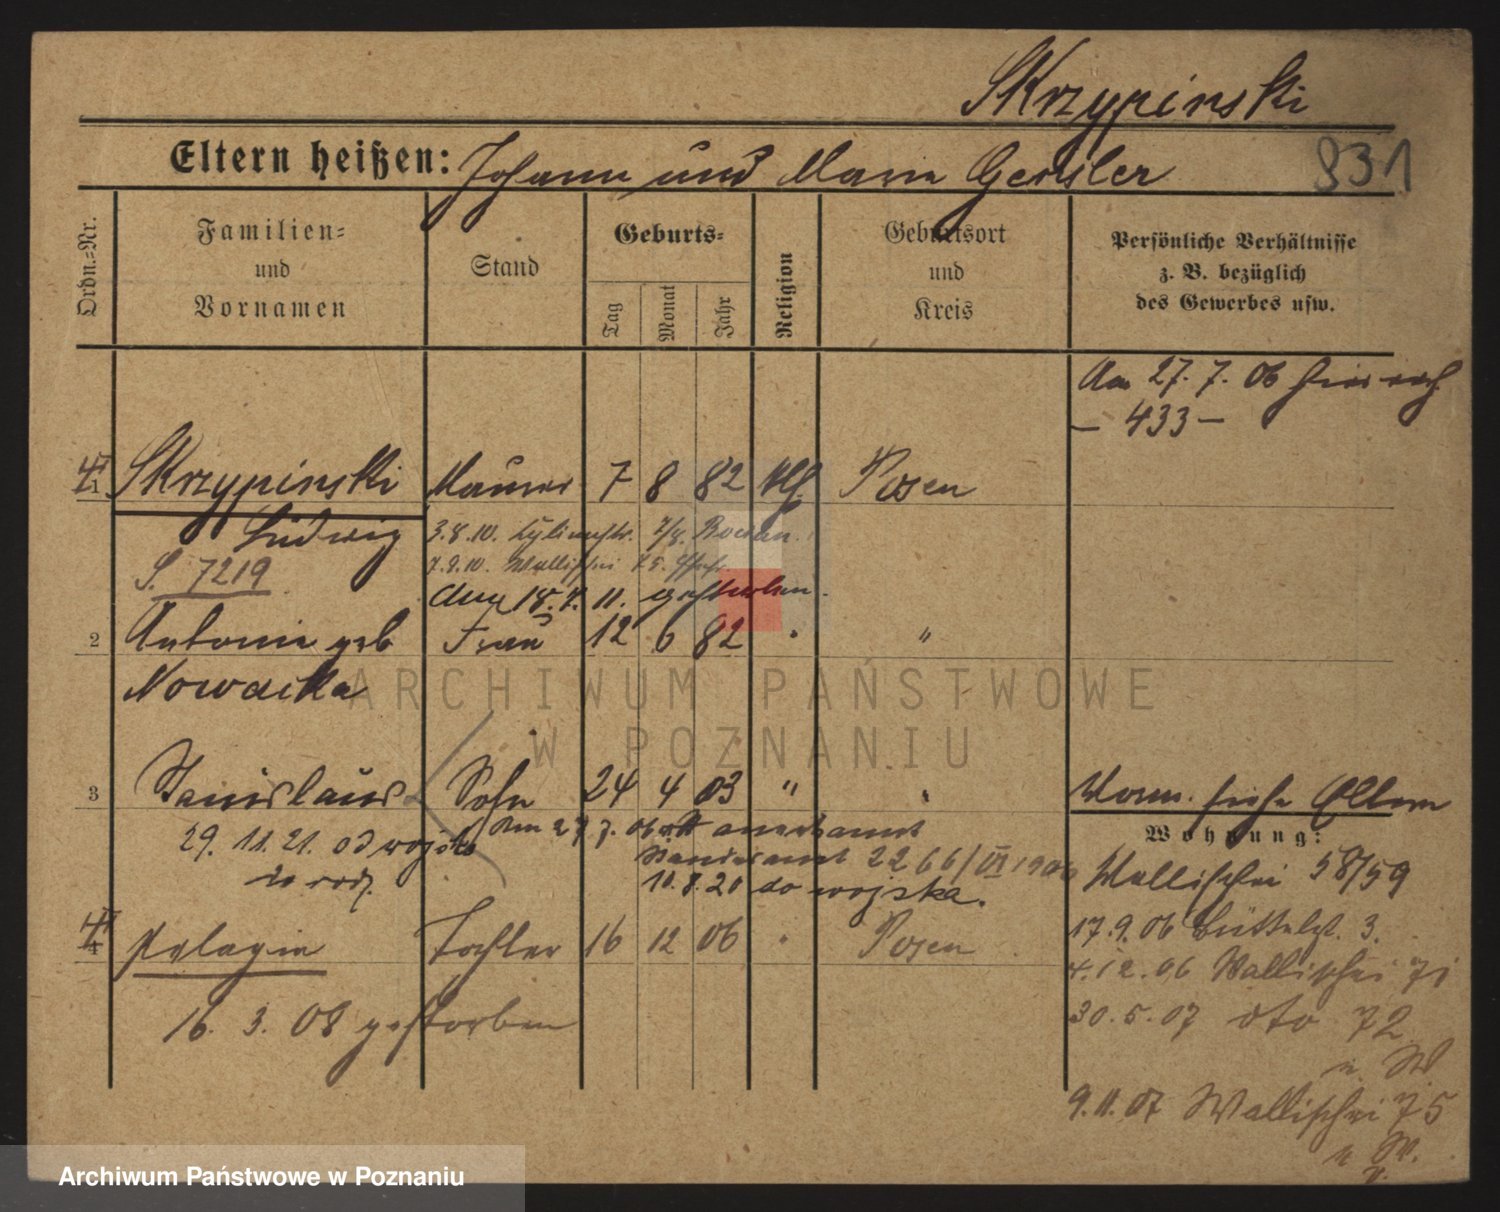 Skrzypinski
Eltern heißen: Johann und Marie Gensler
931
Ordn.=Nr.
Familien=
und
Vornamen
Stand
Geburts=
Tag
Monat
Jahr
Religion
Geburtsort
und
Kreis
Persönliche Verhältnisse
z. B. bezüglich
des Gewerbes usw.
Am 27. 7. 06
– 433 –
1 Skrzypinski Maurer 7 8 82 kth. Posen
Ludwig 3.8.10. 7/8. Bochum.
S. 7219 7.9.10. Wallischei 75.
18. 7. 11. gestorben.
2 Antonie geb Frau 12 6 82 " "
Nowacka
3 Stanislaus Sohn 24 4 03 " "
29. 11. 21. od wojska Am 27 7. 06 anerkannt
Standesamt 2266/III 1906
10. 8. 20 do wojska.
Vorm. siehe Eltern
Wohnung:
Wallischei 58/59
4 Pelagia Tochter 16 12 06 " Posen
16. 3. 08 gestorben
17.9.06 Büttelst. 3.
4.12.06 Wallischei 71
30.5.07 dto 72
n. W
9.11.07 Wallischei 75
n W.
v.
ARCHIWUM PAŃSTWOWE
W POZNANIU
Archiwum Państwowe w Poznaniu